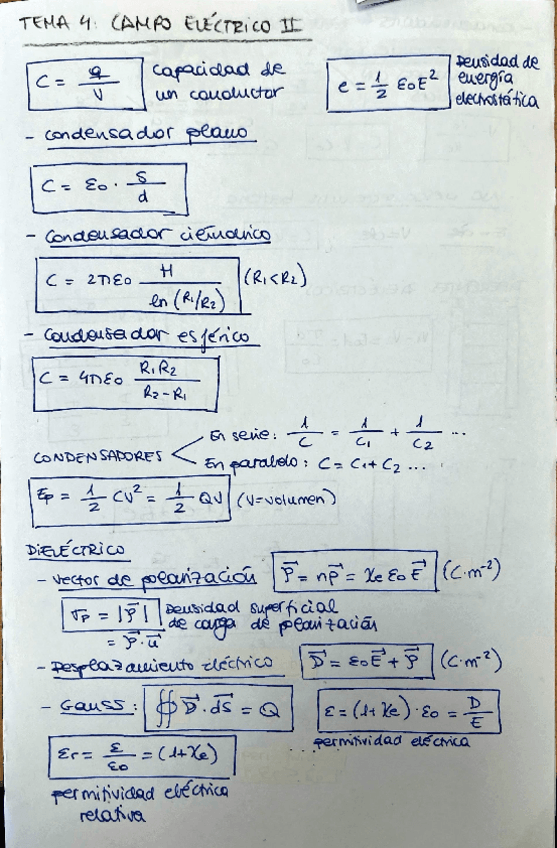 TEMA 4: CAMPO ELÉCTRICO II
C = q/V capacidad de un conductor
e = 1/2 ε0E² Densidad de energía electrostática
- Condensador plano
C = ε0 · S/d
- Condensador cilíndrico
C = 2πε0 H/ln(R1/R2) (R1<R2)
- Condensador esférico
C = 4πε0 R1R2/R2-R1
CONDENSADORES
En serie: 1/C = 1/C1 + 1/C2 ...
En paralelo: C = C1 + C2 ...
Ep = 1/2 CV² = 1/2 QV (V=volumen)
DIELÉCTRICO
- Vector de polarización P⃗ = np⃗ = χe ε0 E⃗ (C·m⁻²)
σp = |P⃗| Densidad superficial de carga de polarización
= P⃗·u⃗
- Desplazamiento eléctrico D⃗ = ε0E⃗ + P⃗ (C·m⁻²)
- Gauss: ∯ D⃗·dS⃗ = Q
ε = (1+χe)·ε0 = D/E
permitividad eléctrica
εr = ε/ε0 = (1+χe)
permitividad eléctrica
relativa